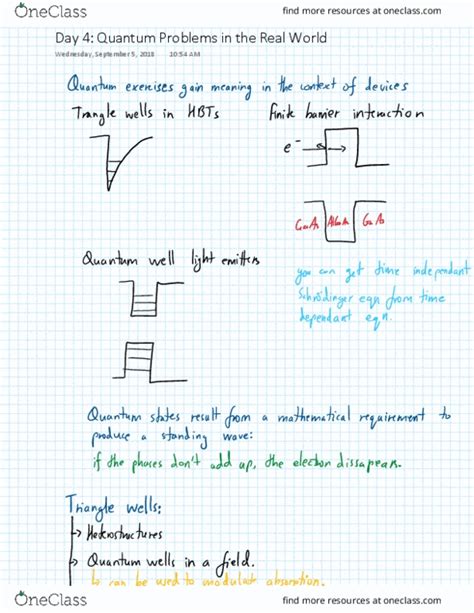 OneClass
find more resources at oneclass.com
Day 4: Quantum Problems in the Real World
Wednesday, September 5, 2018 10:54 AM
Quantum exercises gain meaning in the context of devices
Triangle wells in HBTs
Finite barrier interaction
e⁻
GaAs AlGaAs GaAs
Quantum well light emitters
you can get time independant
Schrödinger eqn from time
dependant eqn.
Quantum states result from a mathematical requirement to
produce a standing wave:
if the phases don't add up, the electron dissapears.
Triangle wells:
↳ Heterostructures
↳ Quantum wells in a field.
↳ can be used to modulate absorption.
OneClass
find more resources at oneclass.com